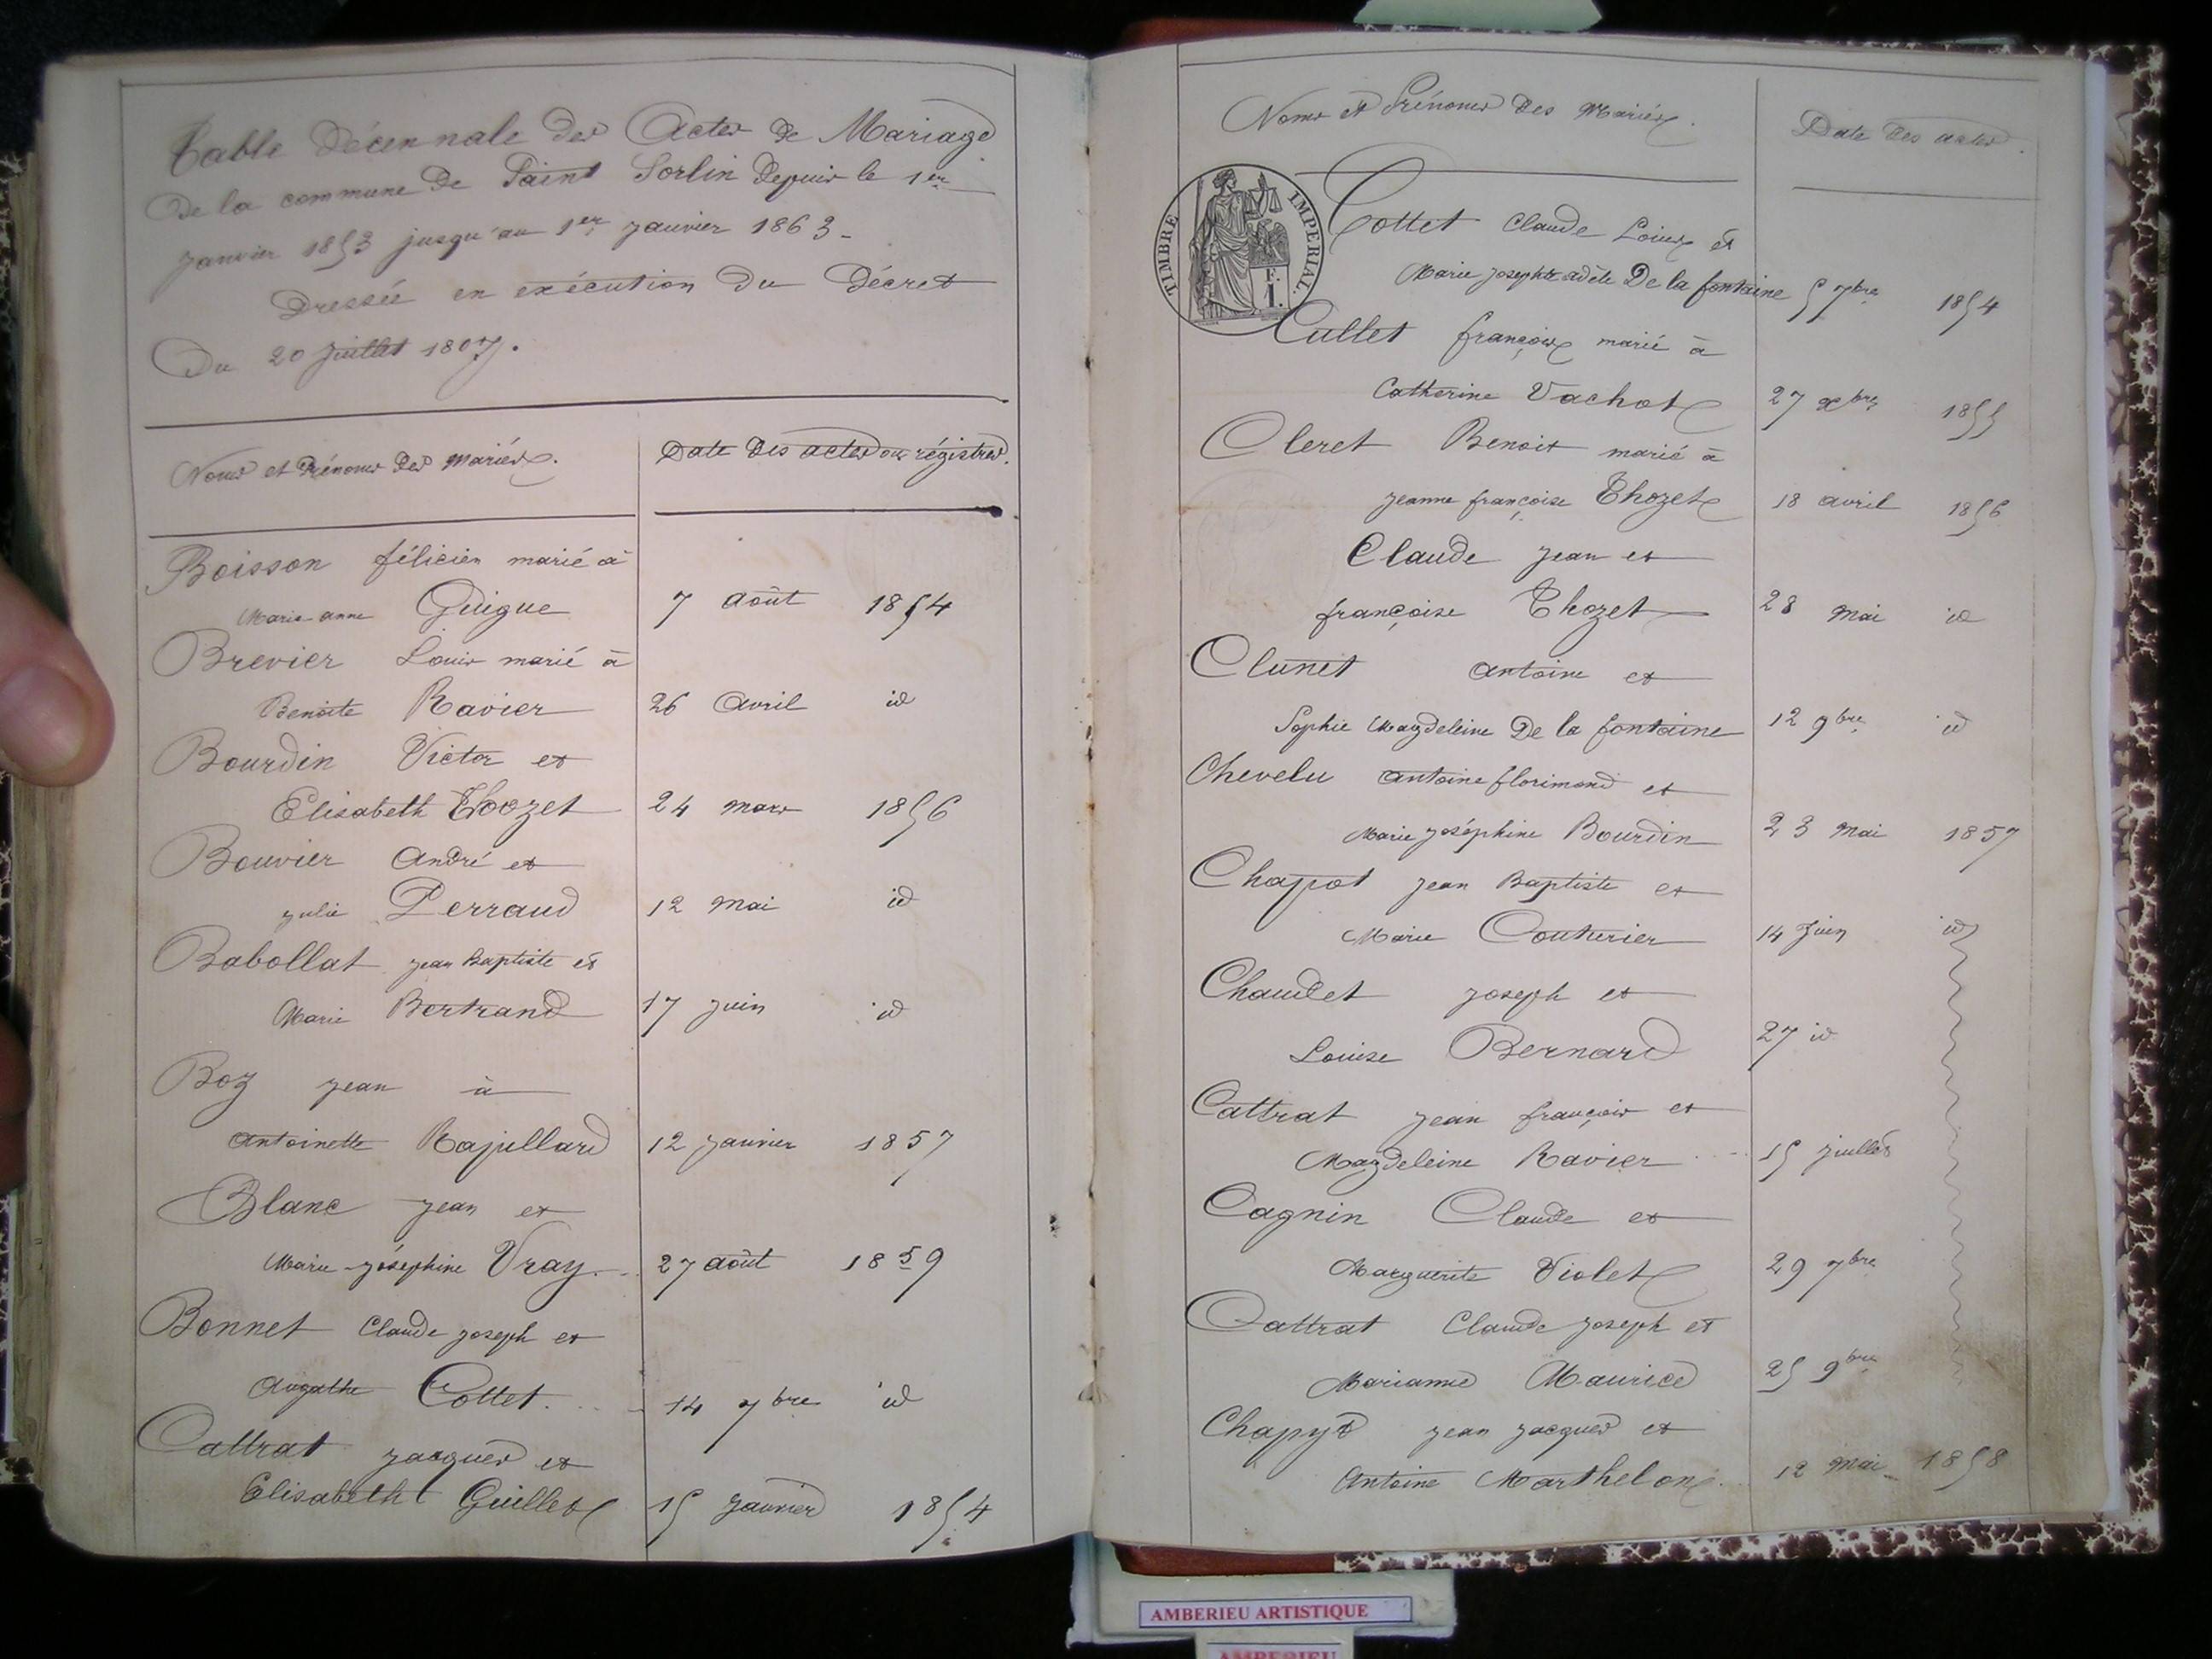 Table décennale des Actes de Mariage
De la commune de Saint Sorlin depuis le 1er
Janvier 1853 jusqu'au 1er Janvier 1863 -
Dressée en exécution du Décret
Du 20 juillet 1807.
Noms et Prénoms des Mariés.
Date des actes ou régistres.
Boisson félicien marié à
Marie anne Guigue 7 Août 1854
Brevier Louis marié à
Benoite Ravier 26 Avril id
Bourdin Victor et
Elisabeth Thozet 24 mars 1856
Bouvier André et
julie Perraud 12 mai id
Babollat jean Baptiste et
Marie Bertrand 17 juin id
Boz jean à
Antoinette Rajullard 12 janvier 1857
Blanc jean et
Marie joséphine Vray 27 août 1859
Bonnet Claude joseph et
Augathe Cottet 14 7bre id
Cattrat jacques et
Elisabeth Guillet 15 janvier 1854
Noms et Prénoms des Mariés.
Date des actes.
TIMBRE IMPERIAL.
E.
1.
Cottet Claude Louis et
Marie josephte adèle De la fontaine 5 7bre 1854
Cullet françois marié à
Catherine Vachot 27 xbre 1855
Cleret Benoit marié à
jeanne françoise Thozet 18 avril 1856
Claude jean et
françoise Thozet 28 mai id
Clunet antoine et
Sophie Magdeleine De la fontaine 12 9bre id
Chevelu antoine florimond et
Marie joséphine Bourdin 23 mai 1857
Chapot jean Baptiste et
Marie Couturier 14 juin id
Chaudet joseph et
Louise Bernard 27 id
Cattrat jean françois et
Magdeleine Ravier 15 juillet
Cagnin Claude et
Marguerite Violet 29 7bre
Cattrat Claude joseph et
Marianne Maurice 25 9bre
Chapyd jean jacques et
Antoine Marthelon 12 mai 1858
AMBERIEU ARTISTIQUE
AMBERIEU